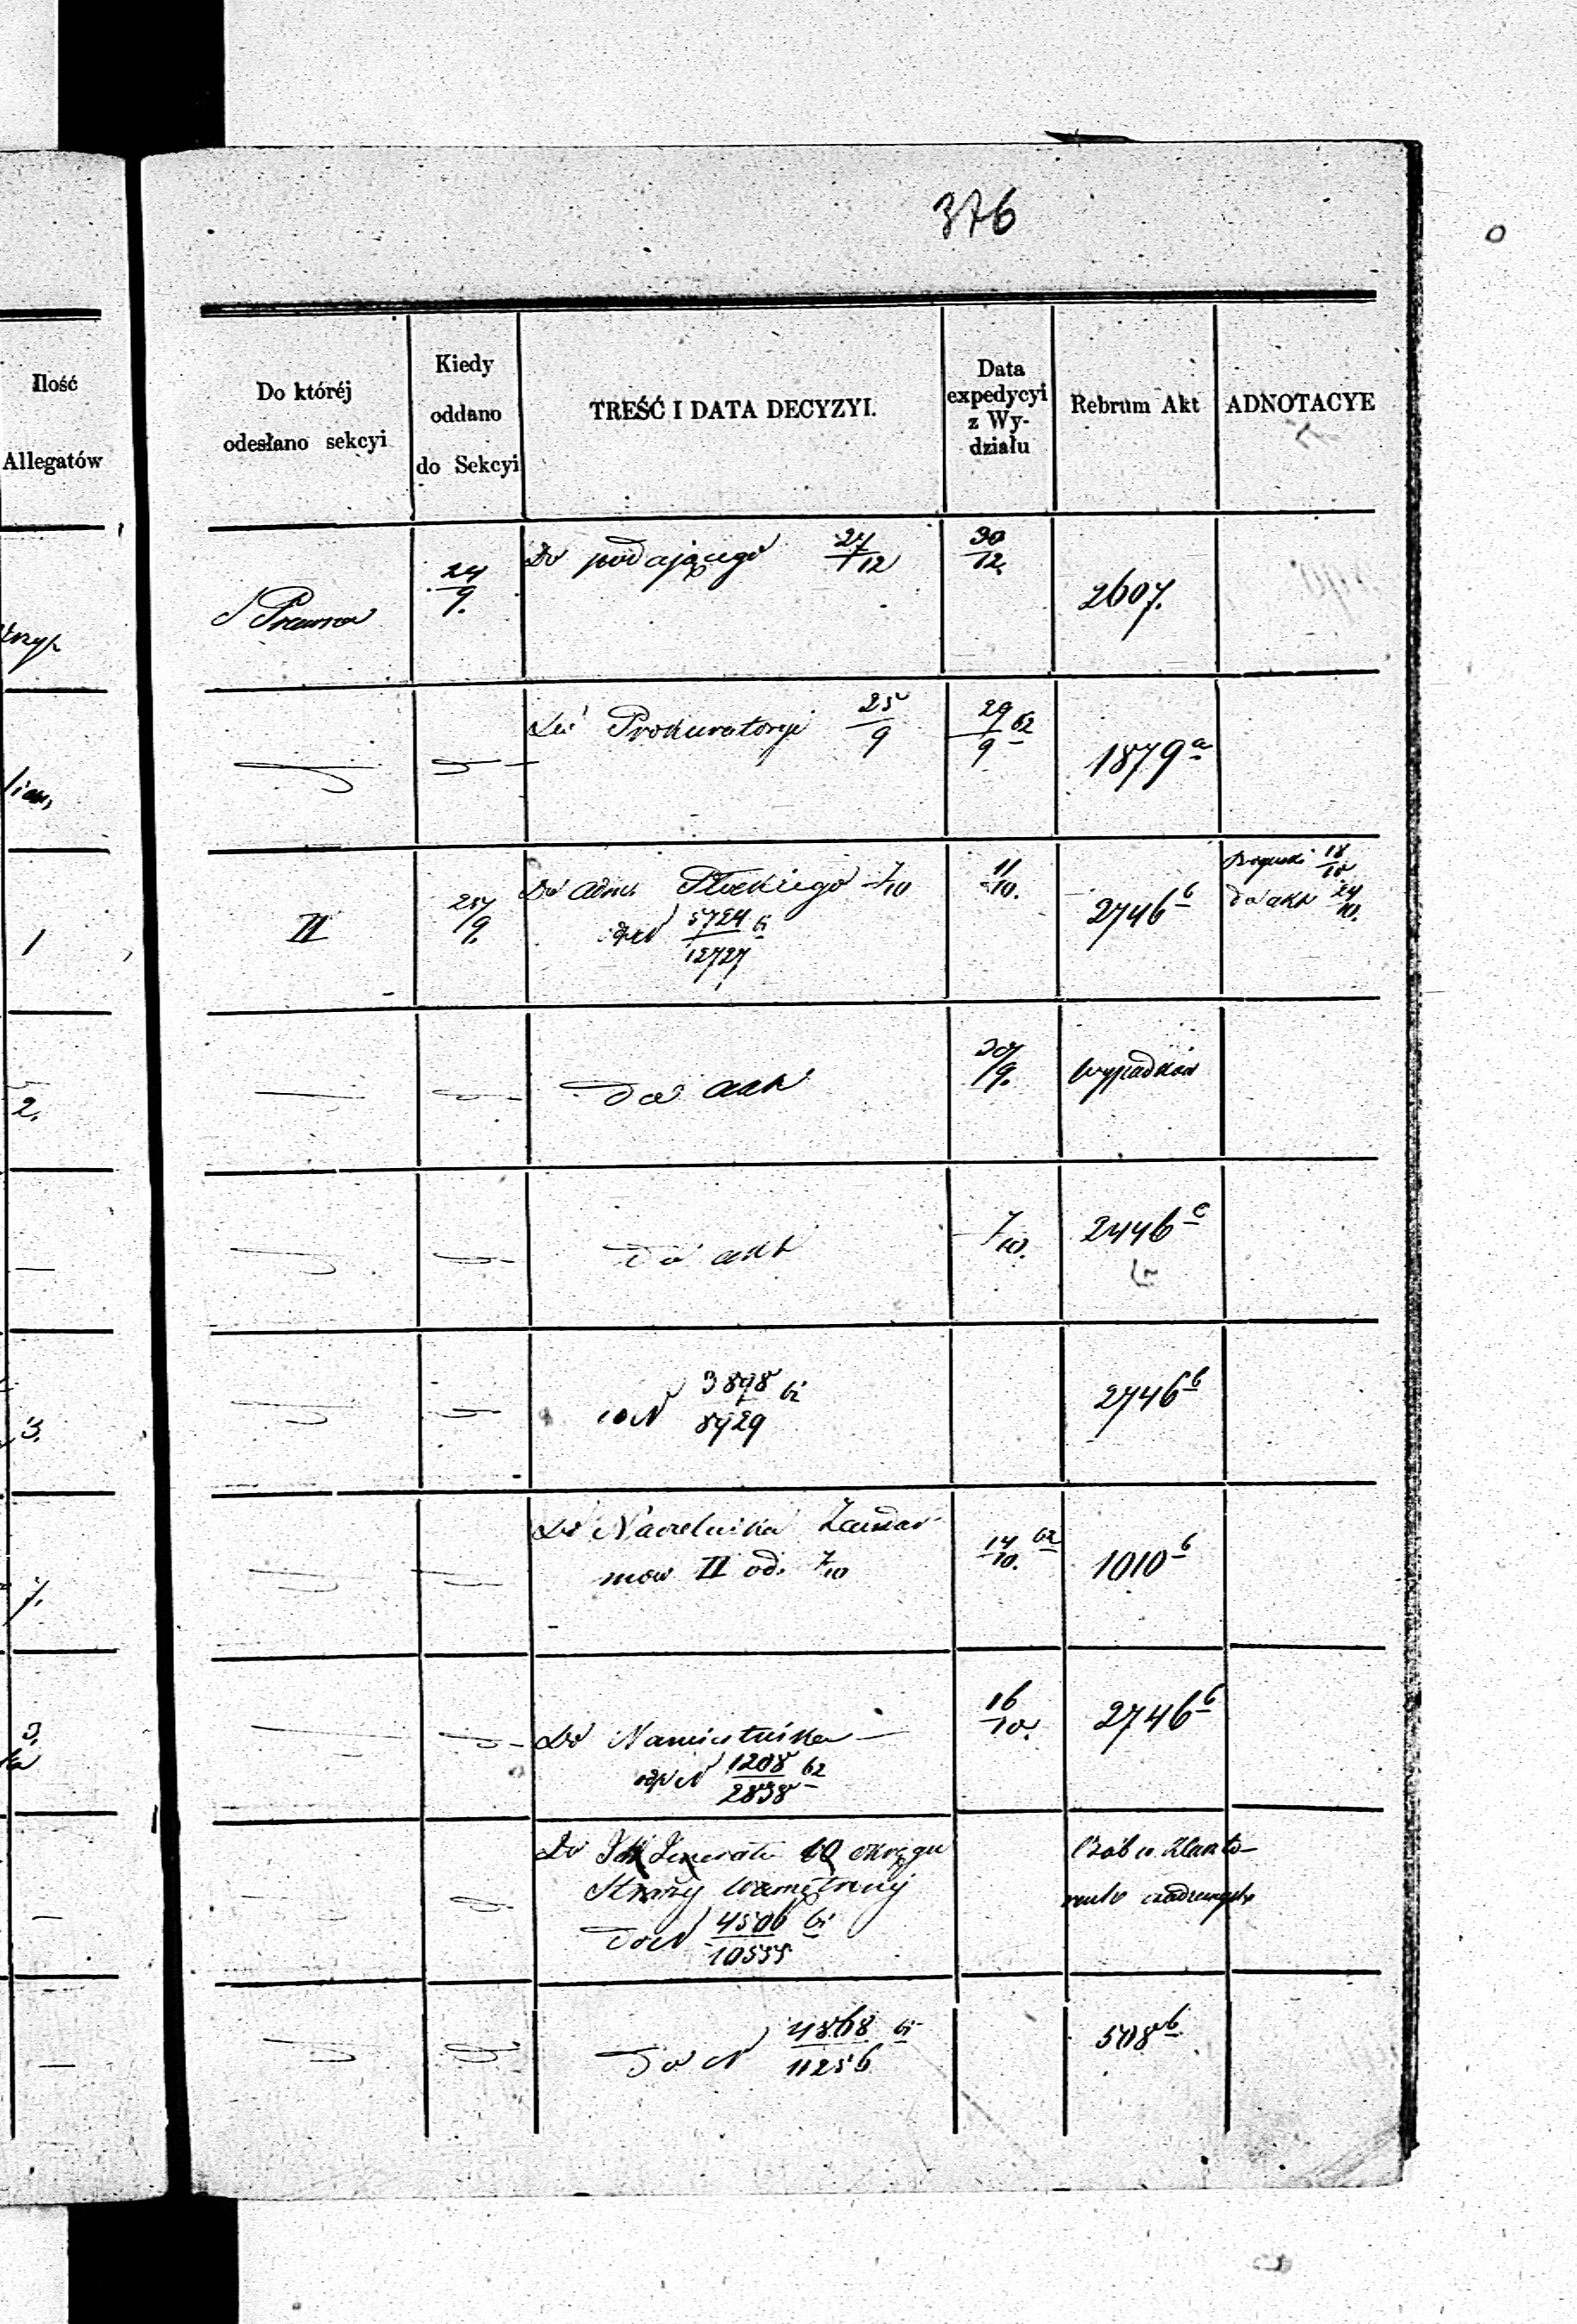 376
Ilość
Allegatów
Do któréj
odesłano sekcyi
Kiedy
oddano
do Sekcyi
TREŚĆ I DATA DECYZYI.
Data
expedycyi
z Wy-
działu
Rebrum Akt
ADNOTACYE
24/9.
Do podającego 27/12
30/12
2607.
Do Prokuratoryi 25/9
29/9 62
1879 a
1
II
25/9.
Do Płockiego 7/10
5724/12727
11/10.
2746 b
18/10
do akt 24/10.
2.
do akt
30/9.
wypadków
do akt
7/10.
2446 c
3.
do N 3898/8929
2746 b
Do Naczelnika Żandar
mów II od. 7/10
14/10. 62
1010 b
Do Namiestnika
odp N 1208/2838 62
16/10.
2746 b
Do okręgu
Straży wewnętrznej
do N 4506/10555
do N 4868/11256
508 b